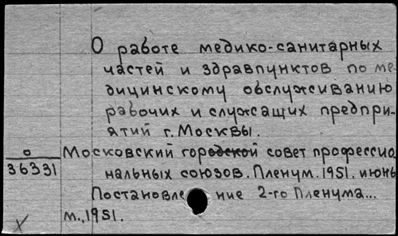 О работе медико-санитарных
частей и здравпунктов по ме-
дицинскому обслуживанию
рабочих и служащих предпри-
ятий г. Москвы.
о
36331
Московский городской совет профессио-
нальных союзов. Пленум. 1951. июнь
Постановле ние 2-го Пленума...
м., 1951.